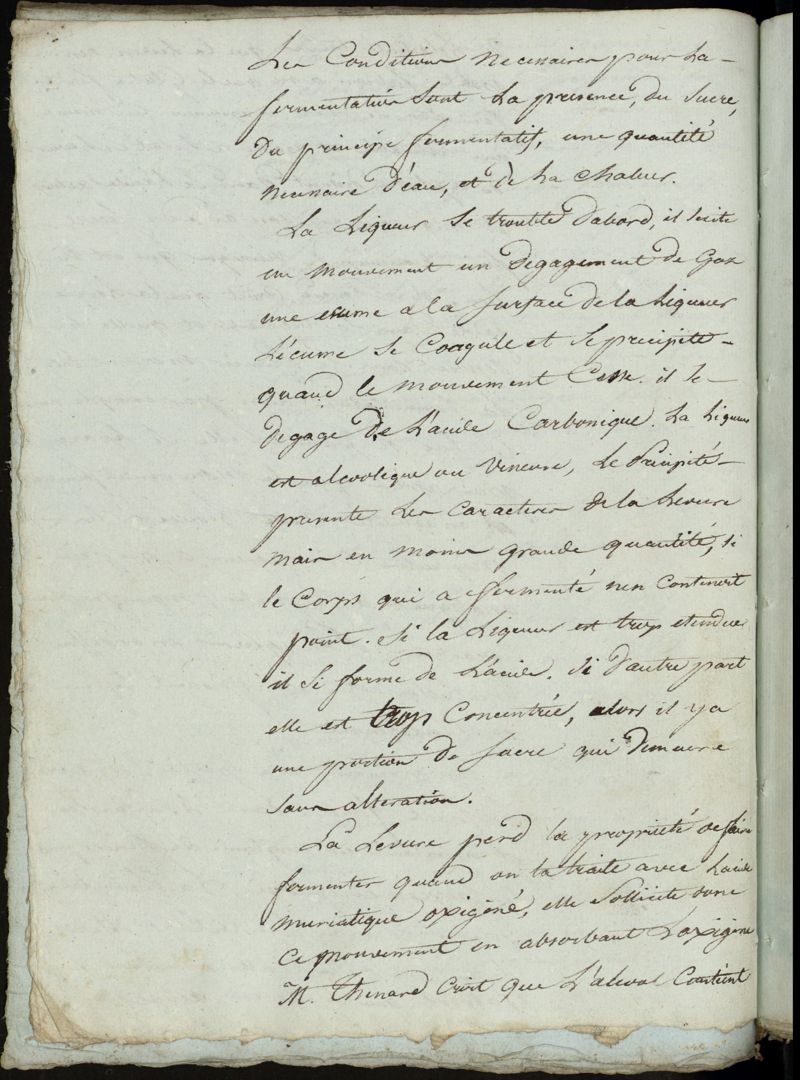 Les Conditions necessaires pour La-
fermentation sont La presence, du sucre,
du principe fermentatif, une quantité
necessaire d'éau, et de La chaleur.
La Liqueur se trouble d'abord, il s'exite
un mouvement un degagement de Gaz
une ecume a la surface de la Liqueur
L'écume se Coagule et se précipite-
quand le mouvement Cesse. il se-
degage de L'acide Carbonique. La Liqueur
est alcoolique ou Vineuse, Le Précipité-
presente Les caracteres de la Levure
mais en moins grande quantité, si
le Corps qui a fermenté n'en contenoit
point. Si la Liqueur est trop etendue
il si forme de L'acide. si d'autre part
elle est trop Concentrée, alors il y a
une portion de sucre qui demeure
sans alteration.
La Levure perd la propriété de faire
fermenter quand on la traite avec L'acide
muriatique oxigéné, elle sollicite donc
Ce mouvement en absorbant L'oxigène
M. Thenard croit que L'alcool Contient